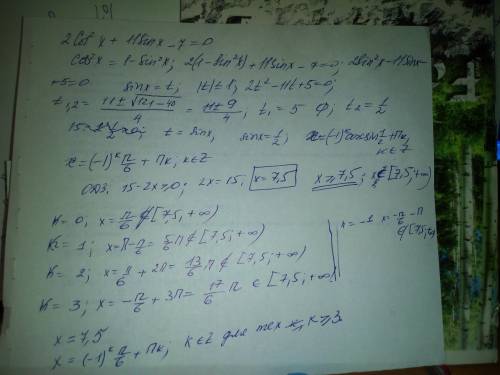 2cos²x + 11sinx - 7 = 0
cos²x = 1 - sin²x; 2(1-sin²x) + 11sinx - 7 = 0; 2sin²x - 11sinx
+5=0; sinx = t; |t| ≤ 1, 2t² - 11t + 5 = 0;
t₁,₂ = (11 ± √(121-40))/4 = (11 ± 9)/4, t₁ = 5 ∅; t₂ = 1/2
t = sinx, sinx = 1/2, x = (-1)ᵏ arcsin 1/2 + πk, k ∈ Z
x = (-1)ᵏ π/6 + πk, k ∈ Z
ОДЗ: 15-2x ≥ 0; 2x = 15; x = 7,5 x ≥ 7,5; x ∈ [7,5; +∞)
K = 0, x = π/6 ∉ [7,5; +∞)
K = 1; x = π - π/6 = 5/6 π ∉ [7,5; +∞)
K = 2; x = π/6 + 2π = 13/6 π ∉ [7,5; +∞)
K = 3; x = -π/6 + 3π = 17/6 π ∈ [7,5; +∞)
к = -1 x = -π/6 - π
∉ [7,5; +∞)
x = 7,5
x = (-1)ᵏ π/6 + πk; k ∈ Z для тех k ≥ 3.